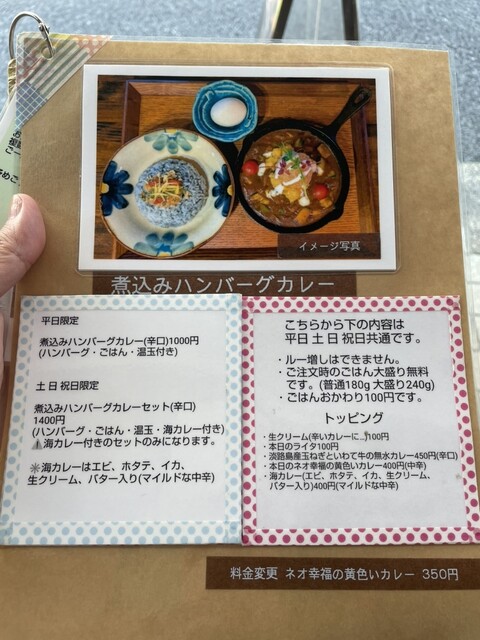 イメージ写真
煮込みハンバーグカレー
平日限定
煮込みハンバーグカレー(辛口)1000円
(ハンバーグ・ごはん・温玉付き)
土 日 祝日限定
煮込みハンバーグカレーセット(辛口)
1400円
(ハンバーグ・ごはん・温玉・海カレー付き)
⚠海カレー付きのセットのみになります。
※海カレーはエビ、ホタテ、イカ、
生クリーム、バター入り(マイルドな中辛)
こちらから下の内容は
平日 土 日 祝日共通です。
・ルー増しはできません。
・ご注文時のごはん大盛り無料
です。(普通180g 大盛り240g)
・ごはんおかわり100円です。
トッピング
・生クリーム(辛いカレーに...)100円
・本日のライタ100円
・淡路島産玉ねぎといわて牛の無水カレー450円(辛口)
・本日のネオ幸福の黄色いカレー400円(中辛)
・海カレー(エビ、ホタテ、イカ、生クリーム、
バター入り)400円(マイルドな中辛)
料金変更 ネオ幸福の黄色いカレー 350円